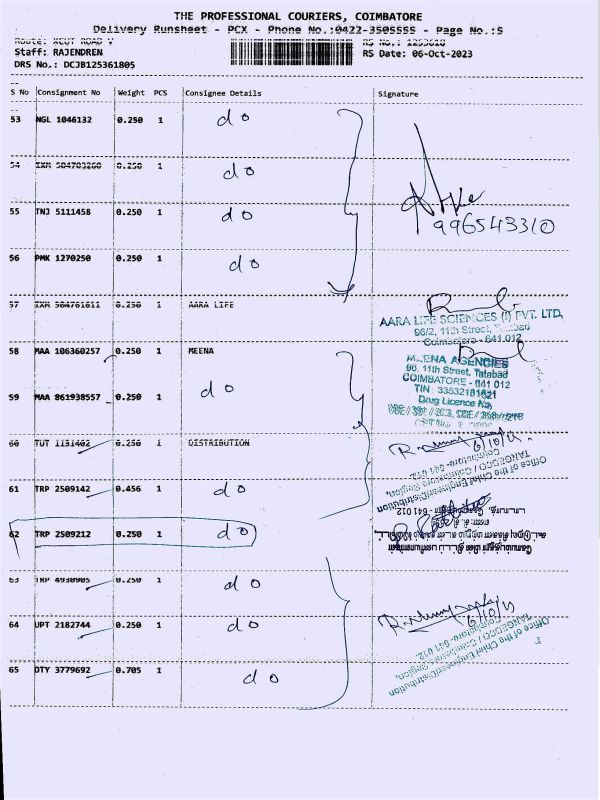 THE PROFESSIONAL COURIERS, COIMBATORE
Delivery Runsheet - PCX - Phone No.:0422-3505555 - Page No.:5
Route: XCUT ROAD V RS No.: 1253618
Staff: RAJENDREN RS Date: 06-Oct-2023
DRS No.: DCJB125361805
S No Consignment No Weight PCS Consignee Details Signature
53 NGL 1046132 0.250 1 do
54 IXM 0.250 1 do
55 TNJ 5111458 0.250 1 do
996543310
56 PMK 1270250 0.250 1 do
57 IXM 0.250 1 AARA LIFE
AARA LIFE SCIENCES (I) PVT. LTD,
96/2, 11th Street, Tatabad
Coimbatore - 641 012
58 MAA 106360257 0.250 1 MEENA
MEENA AGENCIES
96, 11th Street, Tatabad
COIMBATORE - 641 012
59 MAA 861938557 0.250 1 do
TIN : 33532181621
Drug Licence No.
60 TUT 0.250 1 DISTRIBUTION
6/10/23
Office of the Chief Engineer/Distribution
TANGEDCO / Coimbatore Region,
Coimbatore- 641 012.
61 TRP 2509142 0.456 1 do
62 TRP 2509212 0.250 1 do
63 TRP 0.250 1 do
64 UPT 2182744 0.250 1 do
6/10/23
Office of the Chief Engineer/Distribution
TANGEDCO / Coimbatore Region,
Coimbatore- 641 012.
65 OTY 3779692 0.705 1 do